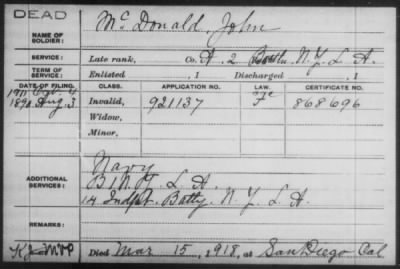 DEAD
NAME OF SOLDIER: Mc Donald, John
SERVICE: Late rank, Co. A. 2 Battn. N.Y. L. A.
TERM OF SERVICE: Enlisted , 1 Discharged , 1
DATE OF FILING. CLASS. APPLICATION NO. LAW. CERTIFICATE NO.
1911 Oct. 4
1890 Aug. 3. Invalid, 921137 868696
Widow,
Minor,
ADDITIONAL SERVICES: Navy
B. N.Y. L. A.
14 Indpt. Batty. N. Y. L. A.
REMARKS:
Died Mar 15, 1918, at San Diego Cal